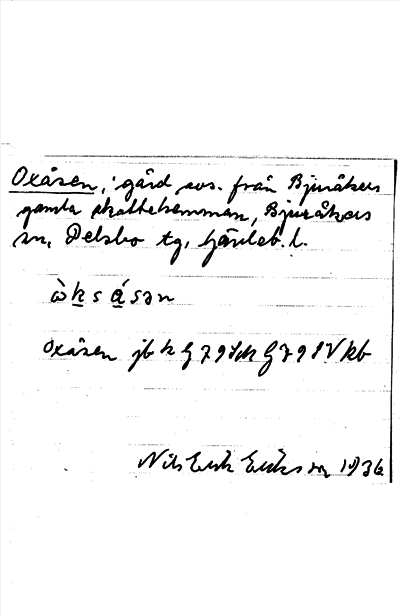 Oxåsen, gård avs. från Bjuråkers
gamla skattehemman, Bjuråkers
sn, Delsbo tg, Gävleb. l.
ò̀k s á sən
Oxåsen jb k
Nils Erik Eriksson 1936